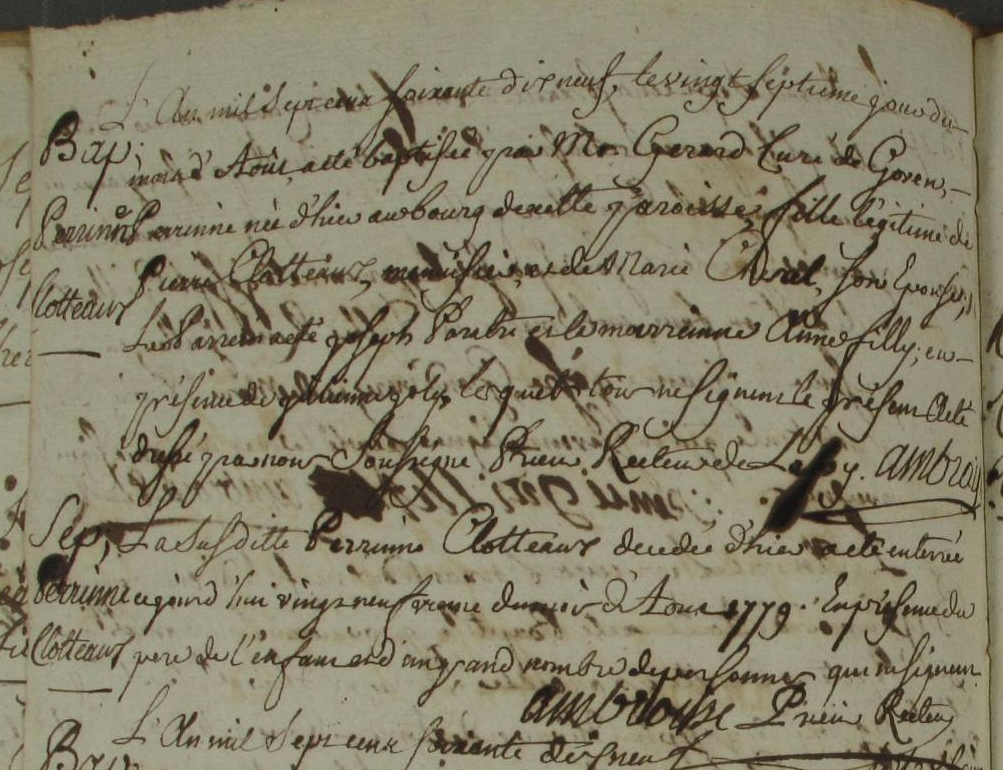 L'An mil Sept cent soixante dix neuf, le vingt septieme jour du
Bap;
mois d'Aout, a eté baptisée par Mr. Gerard Curé de Goven,
Perrinne Perrinne née d'hier au bourg de cette paroisse, fille légitime de
Clotteaux Pierre Clotteaux, menuisier, et de Marie son Epouse;
Le Parrein a eté joseph et la marreinne Anne filly; en
présence de joly, lesquels tous ne signent le présent Acte
dressé par nous Soussigné Prieur Recteur de ambroise
Sep; La Susditte Perrinne Clotteaux decedée d'hier a eté enterrée
Perrinne cejourd'hui vingt neuvieme du mois d'Aout 1779. En présence du
Clotteaux pere de l'enfant et d'un grand nombre de personnes qui ne signent.
ambroise Prieur Recteur
L'An mil Sept cent soixante dix neuf
Bap;